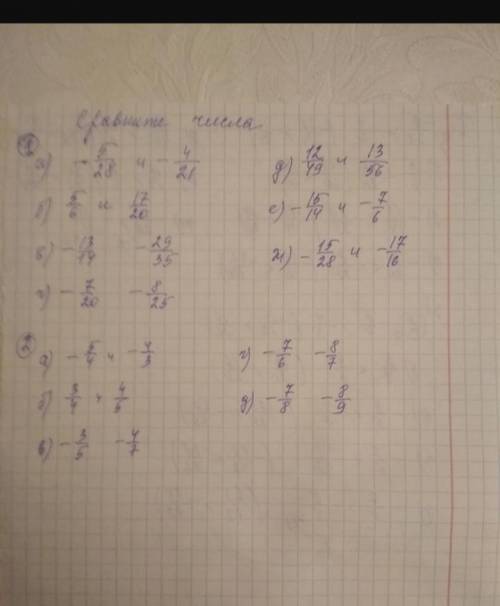 Сравните числа
1
а) -5/28 и -4/21 д) 12/49 и 13/56
б) 5/6 и 17/20 е) -15/14 и -7/6
в) -13/14 -29/35 ж) -15/28 и -17/16
г) -7/20 -8/25
2
а) -5/4 и -4/3 г) -7/6 -8/7
б) 3/4 и 4/5 д) -7/8 -8/9
в) -3/5 -4/7